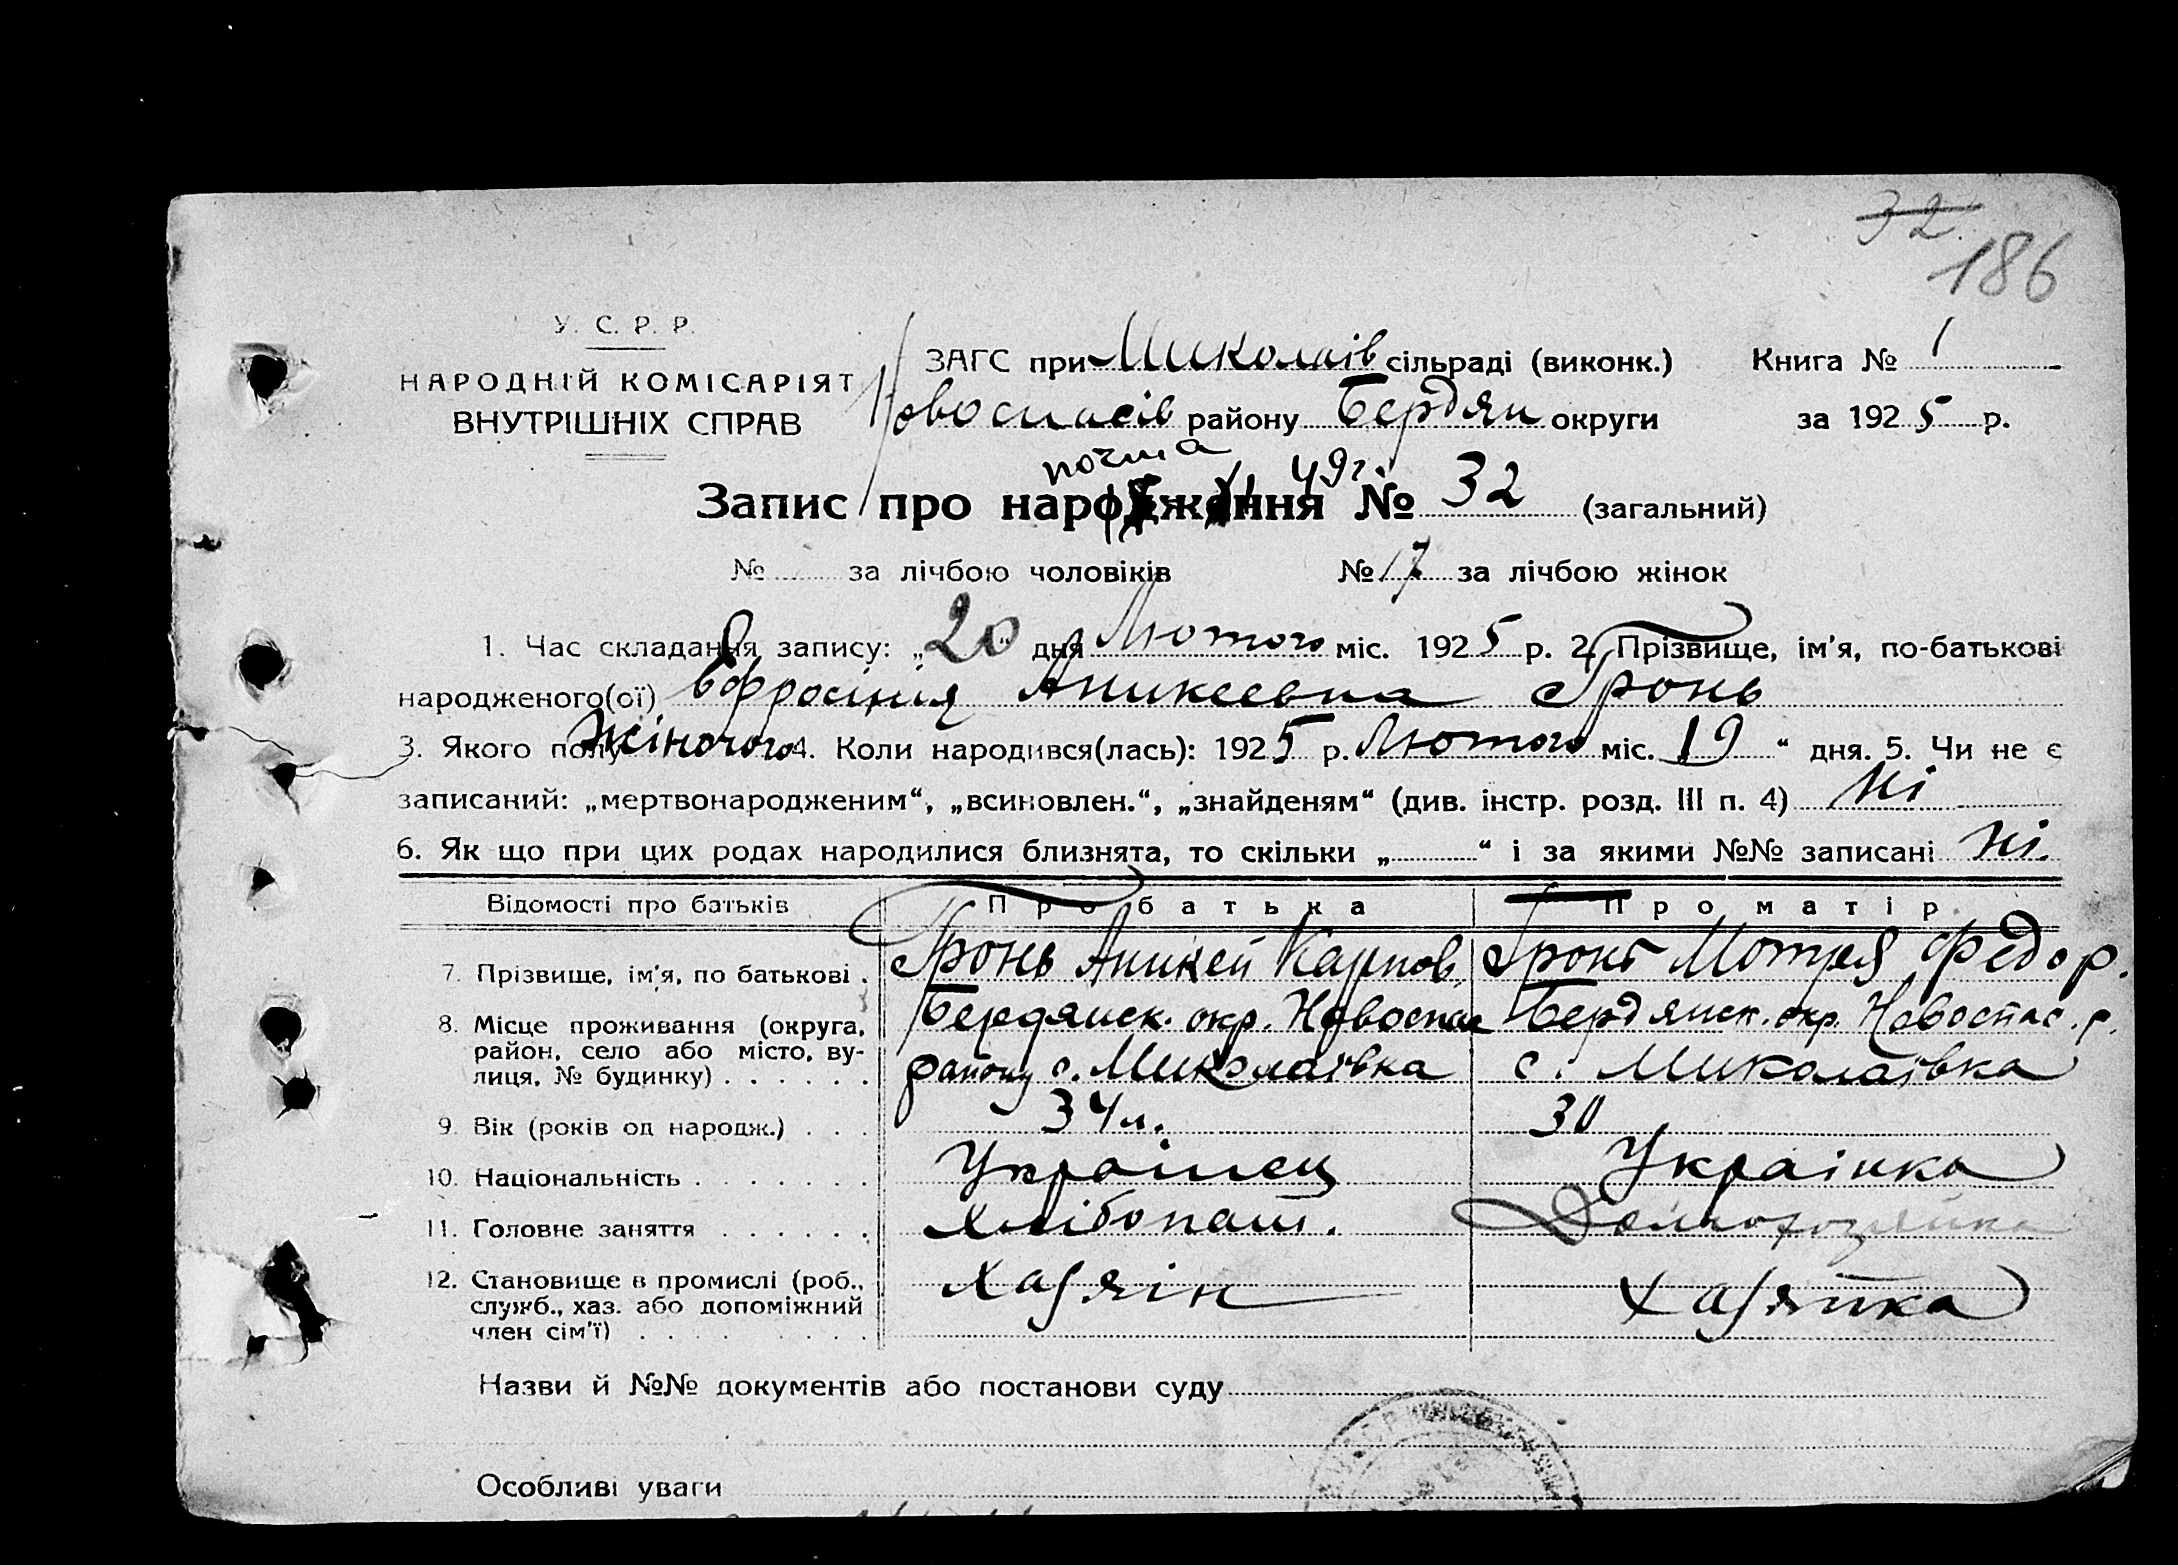 32
186
У. С. Р. Р.
НАРОДНІЙ КОМІСАРІЯТ
ВНУТРІШНІХ СПРАВ
ЗАГС при Миколаїв сільраді (виконк.) Книга № 1
Новоспасів району Бердян округи за 1925 р.
49г.
Запис про народження № 32 (загальний)
№ за лічбою чоловіків № 17 за лічбою жінок
1. Час складання запису: „20" дня Лютого міс. 1925 р. 2. Прізвище, ім'я, по-батькові
народженого(ої) Ефросінія Аникеевна Гронь
3. Якого полу Жіночого 4. Коли народився(лась): 1925 р. Лютого міс. 19 " дня. 5. Чи не є
записаний: „мертвонародженим", „всиновлен.", „знайденям" (див. інстр. розд. III п. 4) Ні
6. Як що при цих родах народилися близнята, то скільки „ " і за якими №№ записані ні.
Відомості про батьків Про батька Про матір
7. Прізвище, ім'я, по батькові Гронь Аникей Карпов. Гронь Мотря Федор.
8. Місце проживання (округа, Бердянск. окр. Новоспас Бердянск. окр. Новоспас. р.
район, село або місто, ву- району с. Миколаївка с. Миколаївка
лиця, № будинку)
9. Вік (років од народж.) 34 л. 30
10. Національність Українец Українка
11. Головне заняття Хлібопаш. Домохозяйка
12. Становище в промислі (роб., Хазяін Хазяйка
служб., хаз. або допоміжний
член сім'ї)
Назви й №№ документів або постанови суду
Особливі уваги